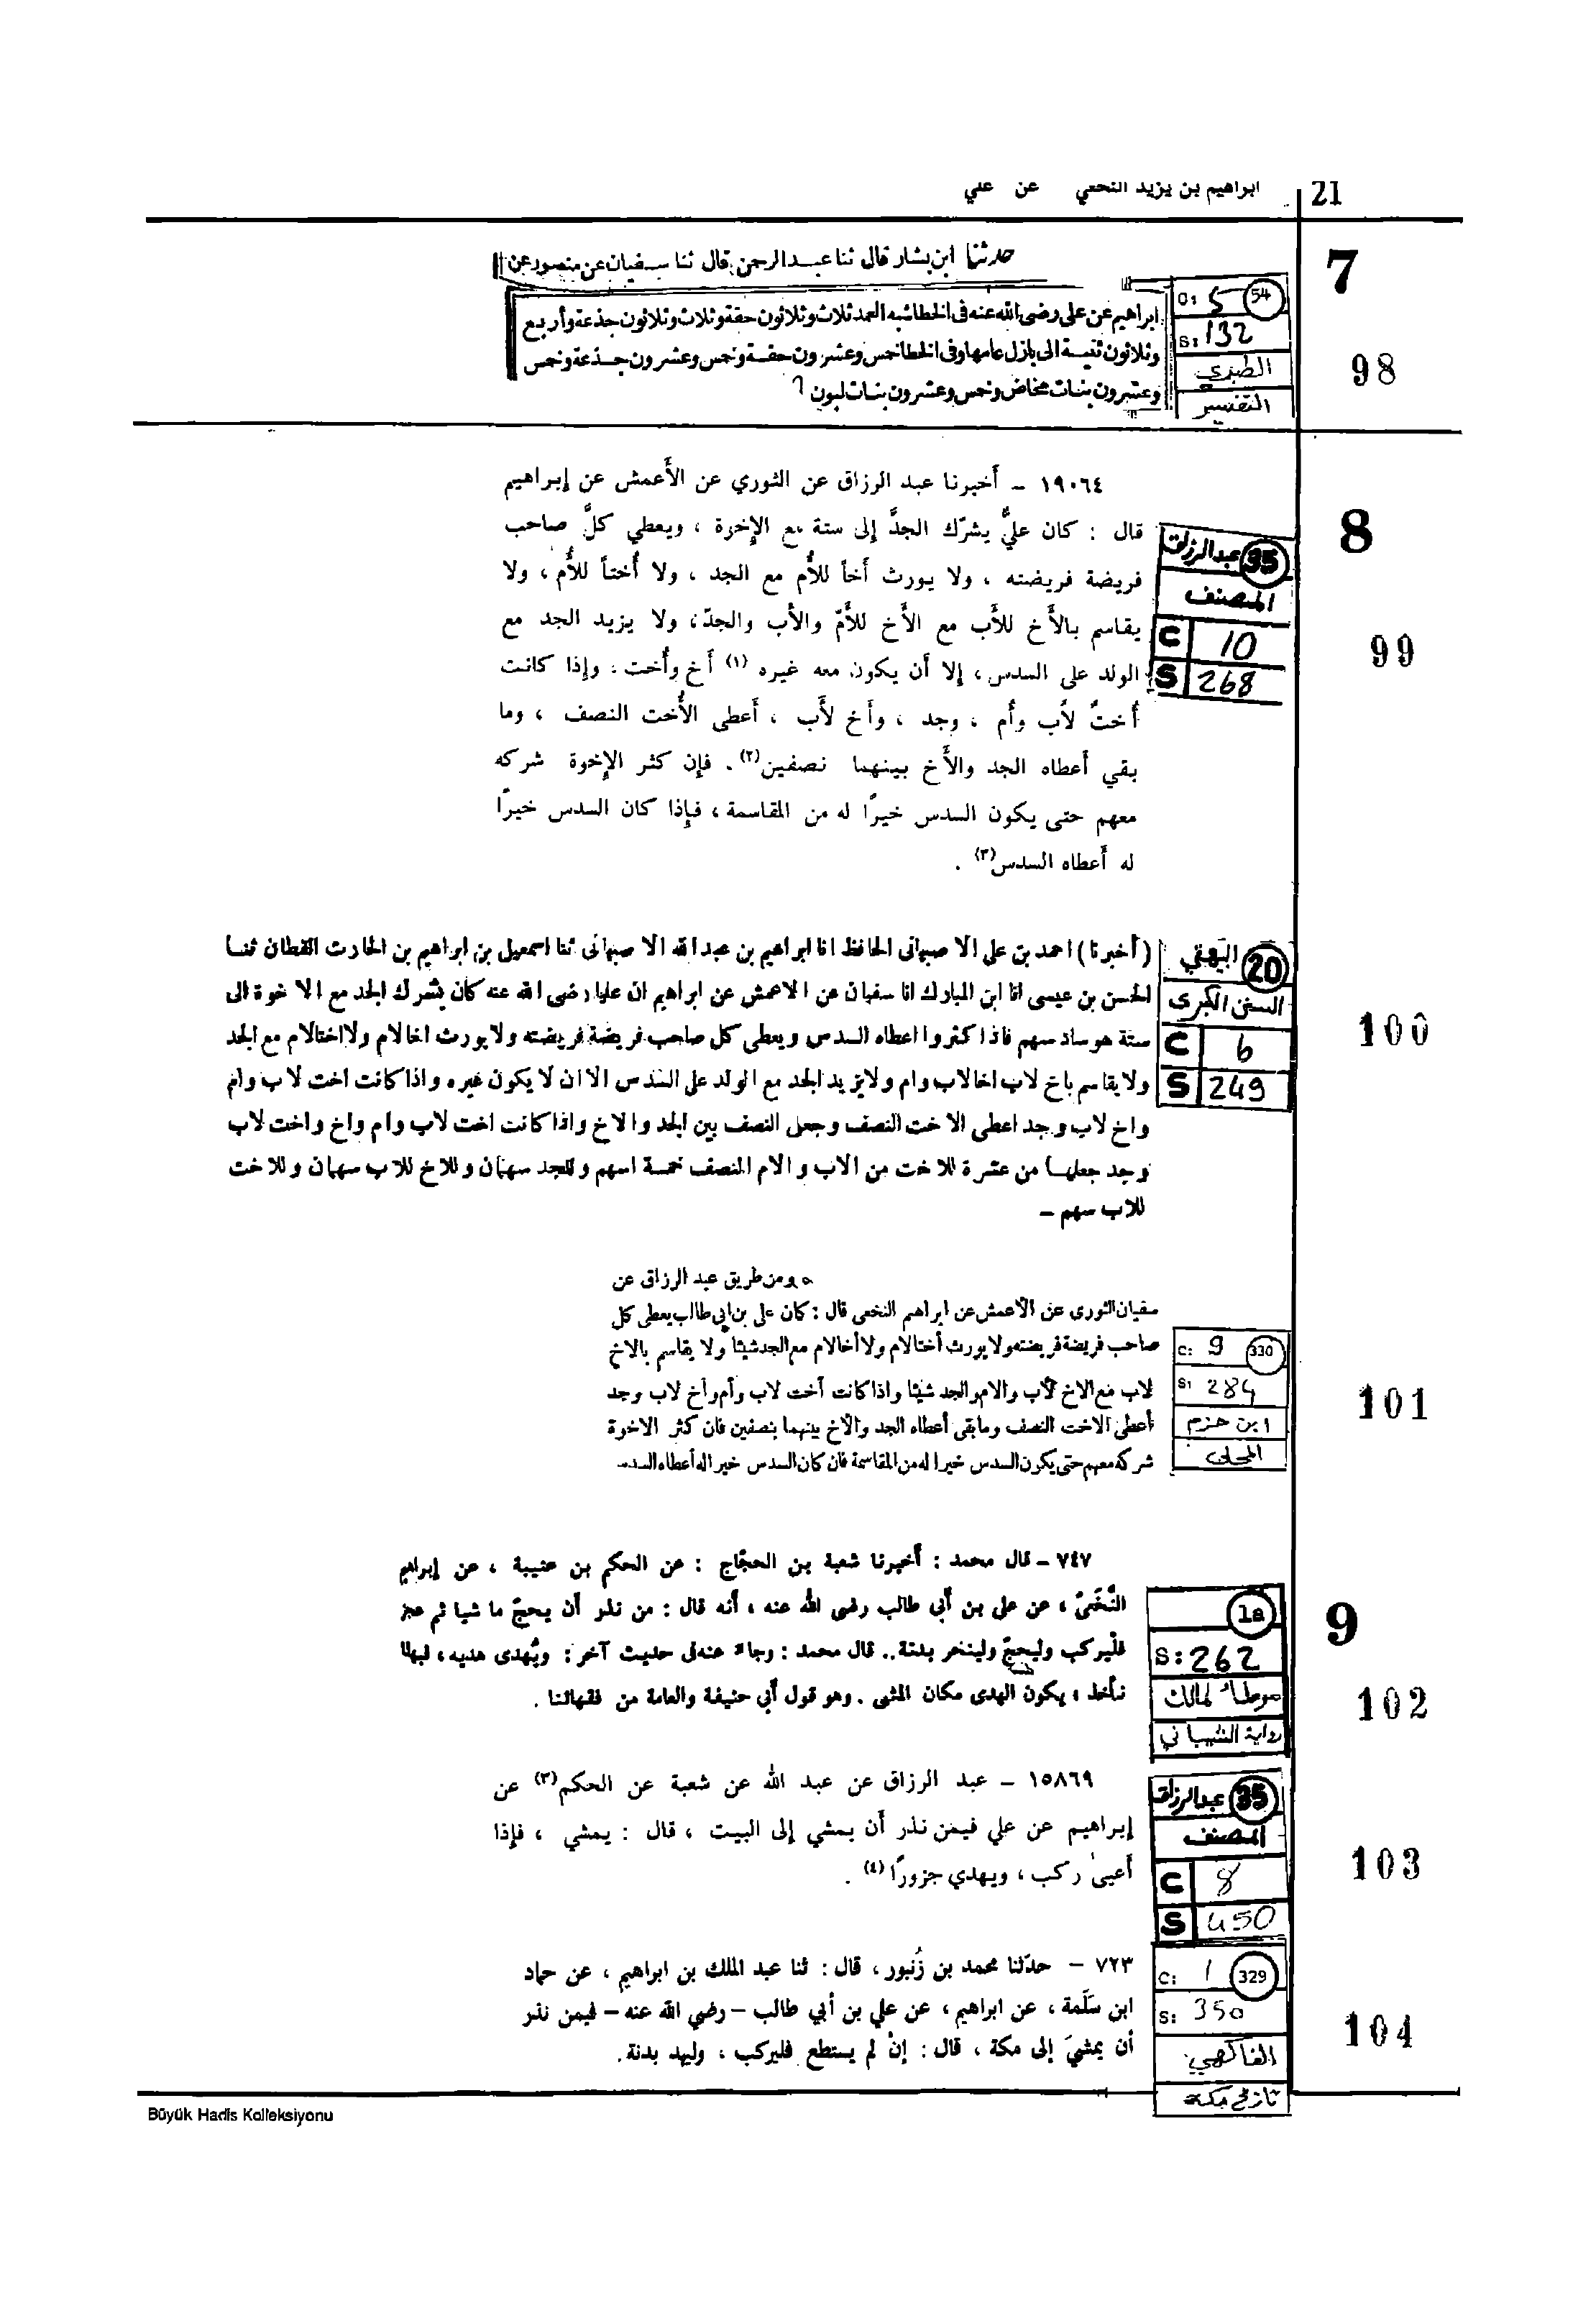 21
ابراهيم بن يزيد النخعي عن علي
7
حدثنا ابن بشار قال ثنا عبد الرحمن قال ثنا سفيان عن منصور عن
ابراهيم عن علي رضى الله عنه فى الخطا شبه العمد ثلاث وثلاثون حقة وثلاث وثلاثون جذعة وأربع
وثلاثون ثنية الى بازل عامها وفى الخطا خمس وعشرون حقة وخمس وعشرون جذعة وخمس
وعشرون بنات مخاض وخمس وعشرون بنات لبون
C: 5 54
S: 132
الطبري
التفسير
98
8
١٩٠٦٤ - أخبرنا عبد الرزاق عن الثوري عن الأعمش عن إبراهيم
قال : كان عليٌّ يشرّك الجدَّ إلى ستة مع الإخوة ، ويعطي كلَّ صاحب
فريضة فريضته ، ولا يورث أخاً للأُم مع الجد ، ولا أُختاً للأُم ، ولا
يقاسم بالأَخ للأَب مع الأَخ للأُمّ والأَب والجدّ، ولا يزيد الجد مع
الولد على السدس ، إلا أن يكون معه غيره (١) أَخ وأُخت ، وإذا كانت
أُختٌ لأَب وأُم ، وجد ، وأَخ لأَب ، أَعطى الأُخت النصف ، وما
بقي أَعطاه الجد والأَخ بينهما نصفين(٢). فإن كثر الإخوة شركه
معهم حتى يكون السدس خيرًا له من المقاسمة ، فإذا كان السدس خيرًا
له أَعطاه السدس(٣) .
عبدالرزاق 35
المصنف
C 10
S 268
99
(أخبرنا) احمد بن على الاصبهانى الحافظ انا ابراهيم بن عبد الله الاصبهانى ثنا اسمعيل بن ابراهيم بن الحارث القطان ثنا
الحسن بن عيسى انا ابن المبارك انا سفيان عن الاعمش عن ابراهيم ان عليا رضى الله عنه كان يشرك الجد مع الاخوة الى
ستة هو سادسهم فاذا كثروا اعطاه السدس ويعطى كل صاحب فريضة فريضته ولا يورث اخا لام ولا اختا لام مع الجد
ولا يقاسم باخ لاب اخا لاب وام ولا يزيد الجد مع الولد على السدس الا ان لا يكون غيره واذا كانت اخت لاب وام
واخ لاب وجد اعطى الاخت النصف وجعل النصف بين الجد والاخ واذا كانت اخت لاب وام واخ واخت لاب
وجد جعلها من عشرة للاخت من الاب والام النصف خمسة اسهم وللجد سهمان وللاخ للاب سهمان وللاخت
للاب سهم -
البيهقي 20
السنن الكبرى
C 6
S 249
100
ومن طريق عبد الرزاق عن
سفيان الثورى عن الأعمش عن ابراهيم النخعى قال : كان على بن ابى طالب يعطى كل
صاحب فريضة فريضته ولا يورث أختا لام ولا أخا لام مع الجد شيئا ولا يقاسم بالاخ
لاب مع الاخ للأب والام والجد شيئا واذا كانت أخت لاب وأم وأخ لاب وجد
أعطى الاخت النصف وما بقى أعطاه الجد والأخ بينهما بنصفين فان كثر الاخوة
شركه معهم حتى يكون السدس خيرا له من المقاسمة فان كان السدس خيرا له أعطاه السدس
C: 9 330
S: 284
ابن حزم
المحلى
101
9
٧٤٧ - قال محمد : أخبرنا شعبة بن الحجّاج : عن الحكم بن عتيبة ، عن إبراهيم
النَّخَعيّ ، عن على بن أبي طالب رضى الله عنه ، أنه قال : من نذر أن يحجّ ماشيا ثم عجز
فليركب وليحجّ ولينحر بدنة.. قال محمد : وجاء عنه فى حديث آخر : ويُهدى هديه ، فبهذا
نأخذ ، يكون الهدى مكان المشى . وهو قول أبي حنيفة والعامة من فقهائنا .
1a
S: 262
موطأ لمالك
رواية الشيباني
102
١٥٨٦٩ - عبد الرزاق عن عبد الله عن شعبة عن الحكم(٣) عن
إبراهيم عن علي فيمن نذر أن يمشي إلى البيت ، قال : يمشي ، فإذا
أَعيىٰ ركب ، ويهدي جزورًا(٤) .
عبدالرزاق 35
المصنف
C 8
S 450
103
٧٢٣ - حدّثنا محمد بن زُنبور ، قال : ثنا عبد الملك بن ابراهيم ، عن حماد
ابن سَلَمة ، عن ابراهيم ، عن علي بن أبي طالب - رضي الله عنه - فيمن نذر
أن يمشيَ إلى مكة ، قال : إنْ لم يستطع فليركب ، وليهد بدنة.
C: 1 329
S: 350
الفاكهي
تاريخ مكة
104
Büyük Hadis Kolleksiyonu